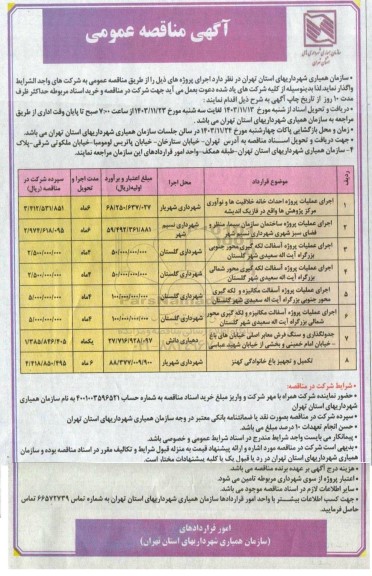 آگهی مناقصه عمومی
سازمان همیاری شهرداریهای استان تهران
- سازمان همیاری شهرداریهای استان تهران در نظر دارد اجرای پروژه های ذیل را از طریق مناقصه عمومی به شرکت های واجد الشرایط
واگذار نماید. لذا بدینوسیله از کلیه شرکت های یاد شده دعوت بعمل می آید جهت شرکت در مناقصه و خرید اسناد مربوطه حداکثر ظرف
مدت ۱۰ روز از تاریخ چاپ آگهی به شرح ذیل اقدام نمایند:
- دریافت و تحویل اسناد از شنبه مورخ ۱۴۰۳/۱۱/۱۳ لغایت سه شنبه مورخ ۱۴۰۳/۱۱/۲۳ از ساعت ۷:۰۰ صبح تا پایان وقت اداری از طریق
مراجعه به سازمان همیاری شهرداریهای استان تهران می باشد.
- زمان و محل بازگشایی پاکات چهارشنبه مورخ ۱۴۰۳/۱۱/۲۴ در سالن جلسات سازمان همیاری شهرداریهای استان تهران می باشد.
- جهت دریافت و تحویل اسناد مناقصه به آدرس تهران- خیابان ستارخان- خیابان پاتریس لومومبا- خیابان ملکوتی شرقی- پلاک
۴ - سازمان همیاری شهرداریهای استان تهران- طبقه همکف- واحد امور قراردادهای این سازمان مراجعه نمایند.
ردیف موضوع قرارداد محل اجرا مبلغ اعتبار و برآورد اولیه(ریال) مدت اجرا و تحویل سپرده شرکت در مناقصه (ریال)
۱ اجرای عملیات پروژه احداث خانه خلاقیت ها و نوآوری مرکز پژوهش ها واقع در فازیک اندیشه شهرداری شهریار ۶۸/۲۵۰/۶۳۷/۰۲۷ ۶ماه ۳/۴۱۲/۵۳۱/۸۵۱
۲ اجرای عملیات پروژه ساختمان سازمان سیما، منظر و فضای سبز شهری شهرداری نسیم شهر شهرداری نسیم شهر ۵۹/۴۹۲/۳۶۱/۸۸۱ ۶ماه ۲/۹۷۴/۶۱۸/۰۹۵
۳ اجرای عملیات پروژه آسفالت لکه گیری محور جنوبی بزرگراه آیت اله سعیدی شهر گلستان شهرداری گلستان ۵۰/۰۰۰/۰۰۰/۰۰۰ ۴ماه ۲/۵۰۰/۰۰۰/۰۰۰
۴ اجرای عملیات پروژه آسفالت لکه گیری محور شمالی بزرگراه آیت اله سعیدی شهر گلستان شهرداری گلستان ۵۰/۰۰۰/۰۰۰/۰۰۰ ۴ماه ۲/۵۰۰/۰۰۰/۰۰۰
۵ اجرای عملیات پروژه آسفالت مکانیزه و لکه گیری محور جنوبی بزرگراه آیت اله سعیدی شهر گلستان شهرداری گلستان ۱۰۰/۰۰۰/۰۰۰/۰۰۰ ۴ماه ۵/۰۰۰/۰۰۰/۰۰۰
۶ اجرای عملیات پروژه آسفالت مکانیزه و لکه گیری محور شمالی بزرگراه آیت اله سعیدی شهر گلستان شهرداری گلستان ۱۰۰/۰۰۰/۰۰۰/۰۰۰ ۴ماه ۵/۰۰۰/۰۰۰/۰۰۰
۷ جدولگذاری و سنگ فرش معابر اصلی خیابان های باغ - خیابان امام خمینی و بخشی از خیابان شهید عباسی دهیاری دانش ۲۷/۷۱۶/۹۲۸/۰۹۷ یکماه ۱/۳۸۵/۸۴۶/۴۰۵
۸ تکمیل و تجهیز باغ خانوادگی کهنز شهرداری شهریار ۸۸/۳۷۷/۰۰۹/۹۰۰ ۶ ماه ۴/۴۱۸/۸۵۰/۴۹۵
• شرایط شرکت در مناقصه:
- حضور نماینده شرکت همراه با مهر شرکت و واریز مبلغ خرید اسناد مناقصه به شماره حساب ۴۰۰۱۰۰۳۵۹۶۵۳۱ به نام سازمان همیاری
شهرداریهای استان تهران
- سپرده شرکت در مناقصه بصورت نقد یا ضمانتنامه بانکی معتبر در وجه سازمان همیاری شهرداریهای استان تهران.
- حسن انجام تعهدات ۱۰ درصد مبلغ می باشد.
- پیمانکار می بایست واجد شرایط مندرج در اسناد شرایط عمومی و خصوصی باشد.
- بدیهی است شرکت در مناقصه مورد اشاره و ارائه پیشنهاد قیمت به منزله قبول شرایط و تکالیف مقرر در اسناد مناقصه بوده و سازمان
همیاری شهرداریهای استان تهران در رد یا قبول یک یا کلیه پیشنهادات مختار است.
- هزینه درج آگهی بر عهده برنده مناقصه می باشد.
- اعتبار پروژه از سوی شهرداری مربوطه تامین می شود.
- سایر اطلاعات لازم در اسناد مناقصه موجود می باشد.
- جهت کسب اطلاعات بیشتر با واحد امور قراردادها سازمان همیاری شهرداریهای استان تهران به شماره تماس ۶۶۵۷۲۷۳۹ تماس
حاصل فرمایید.
امور قراردادهای
(سازمان همیاری شهرداریهای استان تهران)